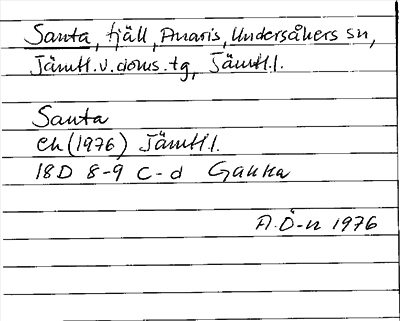 Santa, fjäll, Anaris, Undersåkers sn,
Jämtl.v.doms.tg, Jämtl.l.
Santa
Ek (1976) Jämtl.l.
18D 8-9 c-d Ganka
A.Ö-n 1976